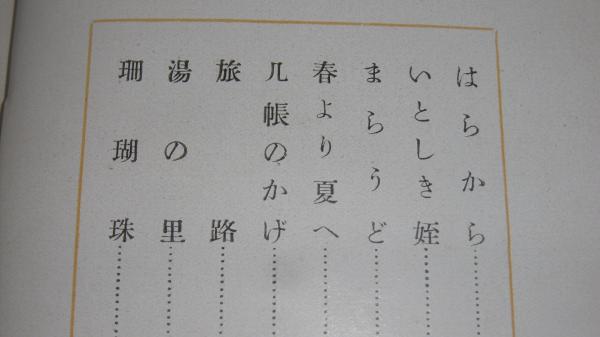 はらから
いとしき姪
まらうど
春より夏へ
几帳のかげ
旅路
湯の里
珊瑚珠